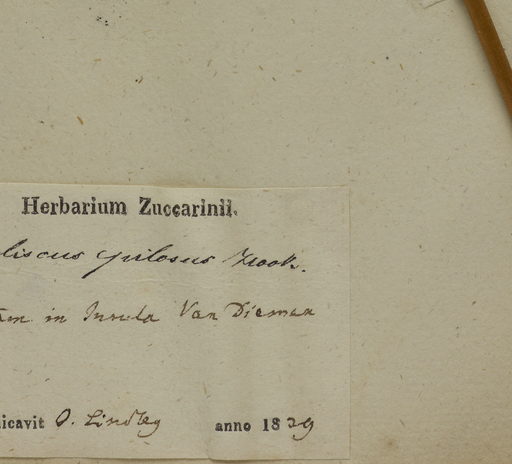 Herbarium Zuccarinii.
liscus pilosus Hook.
in Insula Van Dieman
icavit D. Lindley anno 1829